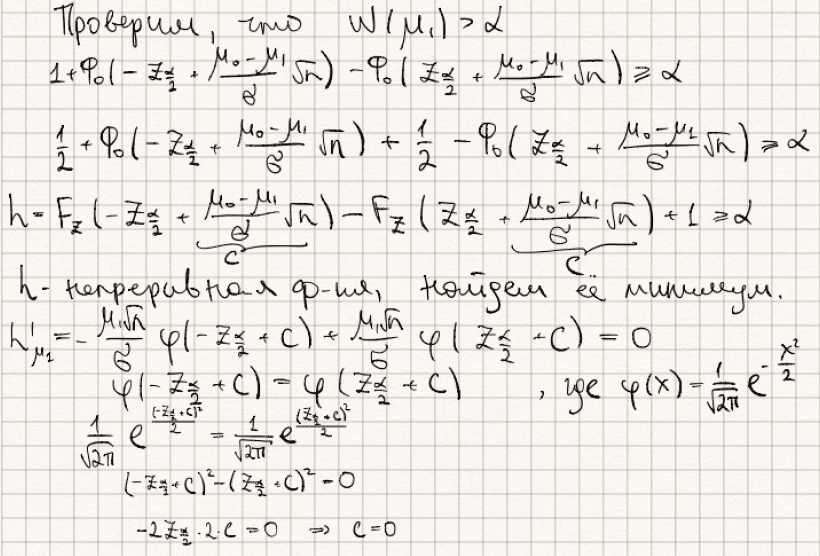 Проверим, что W(μ₁) > α
1+Φ₀(-z_{α/2} + (μ₀-μ₁)/σ √n) - Φ₀(z_{α/2} + (μ₀-μ₁)/σ √n) ⩾ α
1/2 + Φ₀(-z_{α/2} + (μ₀-μ₁)/σ √n) + 1/2 - Φ₀(z_{α/2} + (μ₀-μ₁)/σ √n) ⩾ α
h = F_z(-z_{α/2} + (μ₀-μ₁)/σ √n) - F_z(z_{α/2} + (μ₀-μ₁)/σ √n) + 1 ⩾ α
c c
h - непреривная ф-ия, найдем её минимум.
h'_{μ₁} = -μ₁√n/σ φ(-z_{α/2} + c) + μ₁√n/σ φ(z_{α/2} + c) = 0
φ(-z_{α/2} + c) = φ(z_{α/2} + c) , где φ(x) = 1/√2π e^{-x²/2}
1/√2π e^{(-z_{α/2}+c)²/2} = 1/√2π e^{(z_{α/2}+c)²/2}
(-z_{α/2}+c)² - (z_{α/2}+c)² = 0
-2z_{α/2}·2·c = 0 ⇒ c = 0